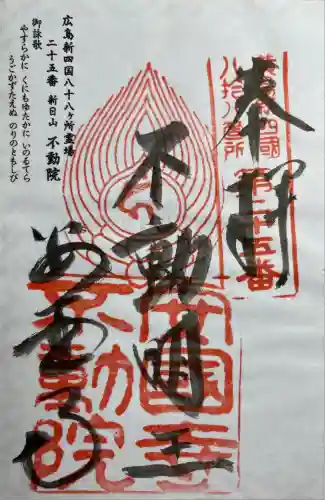 奉拝
廣島新四國
八拾八箇所
第二十五番
不動明王
安国寺
不動院
広島新四国八十八ヶ所霊場
二十五番 新日山 不動院
御詠歌
やすらかに くにもゆたかに いのるてら
うごかずたえぬ のりのともしび